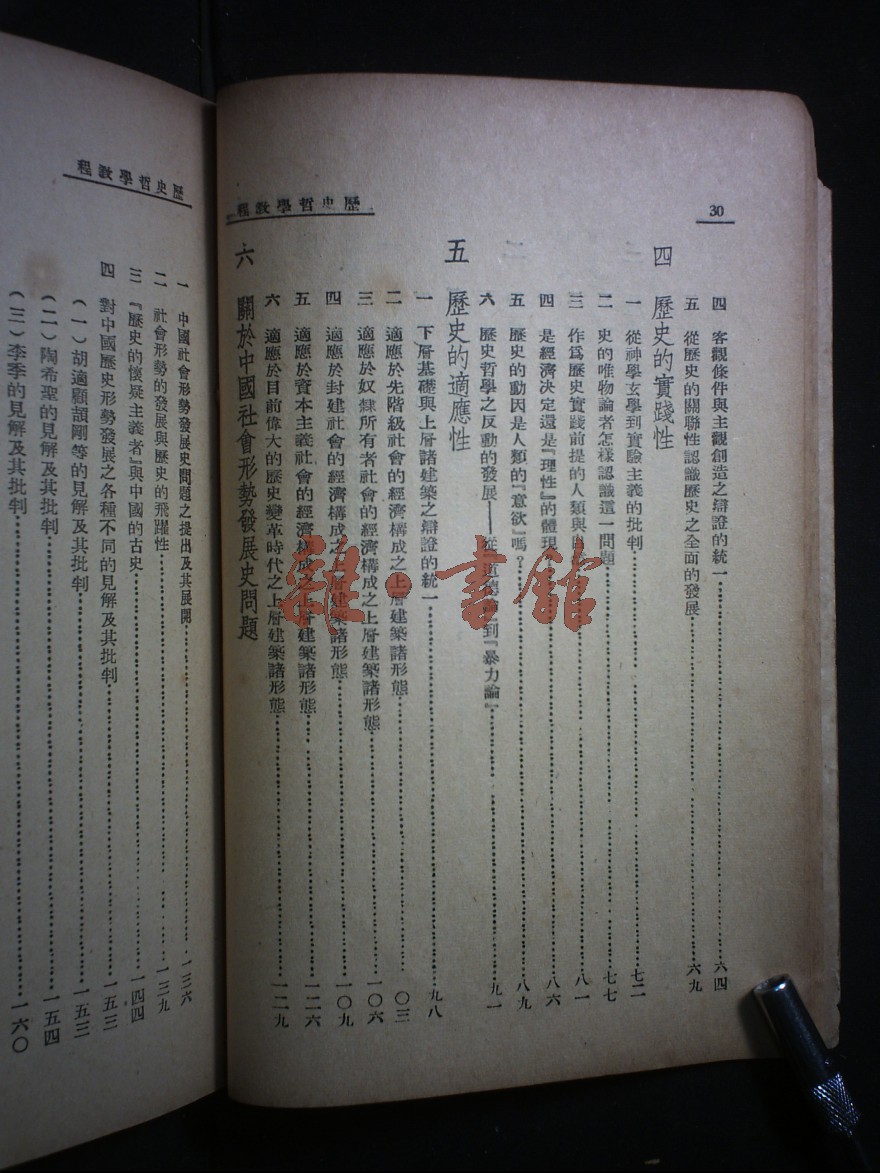 30
歷史哲學教程
四　客觀條件與主觀創造之辯證的統一……六四
五　從歷史的關聯性認識歷史之全面的發展……六九
四　歷史的實踐性
一　從神學玄學到實驗主義的批判……七二
二　史的唯物論者怎樣認識這一問題……七七
三　作為歷史實踐前提的人類與自……八一
四　是經濟決定還是『理性』的體現？……八六
五　歷史的動因是人類的『意欲』嗎？……八九
六　歷史哲學之反動的發展——從『道德』到『暴力論』……九一
五　歷史的適應性
一　下層基礎與上層諸建築之辯證的統一……九八
二　適應於先階級社會的經濟構成之上層建築諸形態……〇三
三　適應於奴隸所有者社會的經濟構成之上層建築諸形態……一〇六
四　適應於封建社會的經濟構成之上層建築諸形態……一〇九
五　適應於資本主義社會的經濟構成之上層建築諸形態……一二六
六　適應於目前偉大的歷史變革時代之上層建築諸形態……一二九
六　關於中國社會形勢發展史問題
歷史哲學教程
一　中國社會形勢發展史問題之提出及其展開……一三六
二　社會形勢的發展與歷史的飛躍性……一三九
三　『歷史的懷疑主義者』與中國的古史……一四四
四　對中國歷史形勢發展之各種不同的見解及其批判……一五三
（一）胡適顧頡剛等的見解及其批判……一五三
（二）陶希聖的見解及其批判……一五四
（三）李季的見解及其批判……一六〇
雜·書館